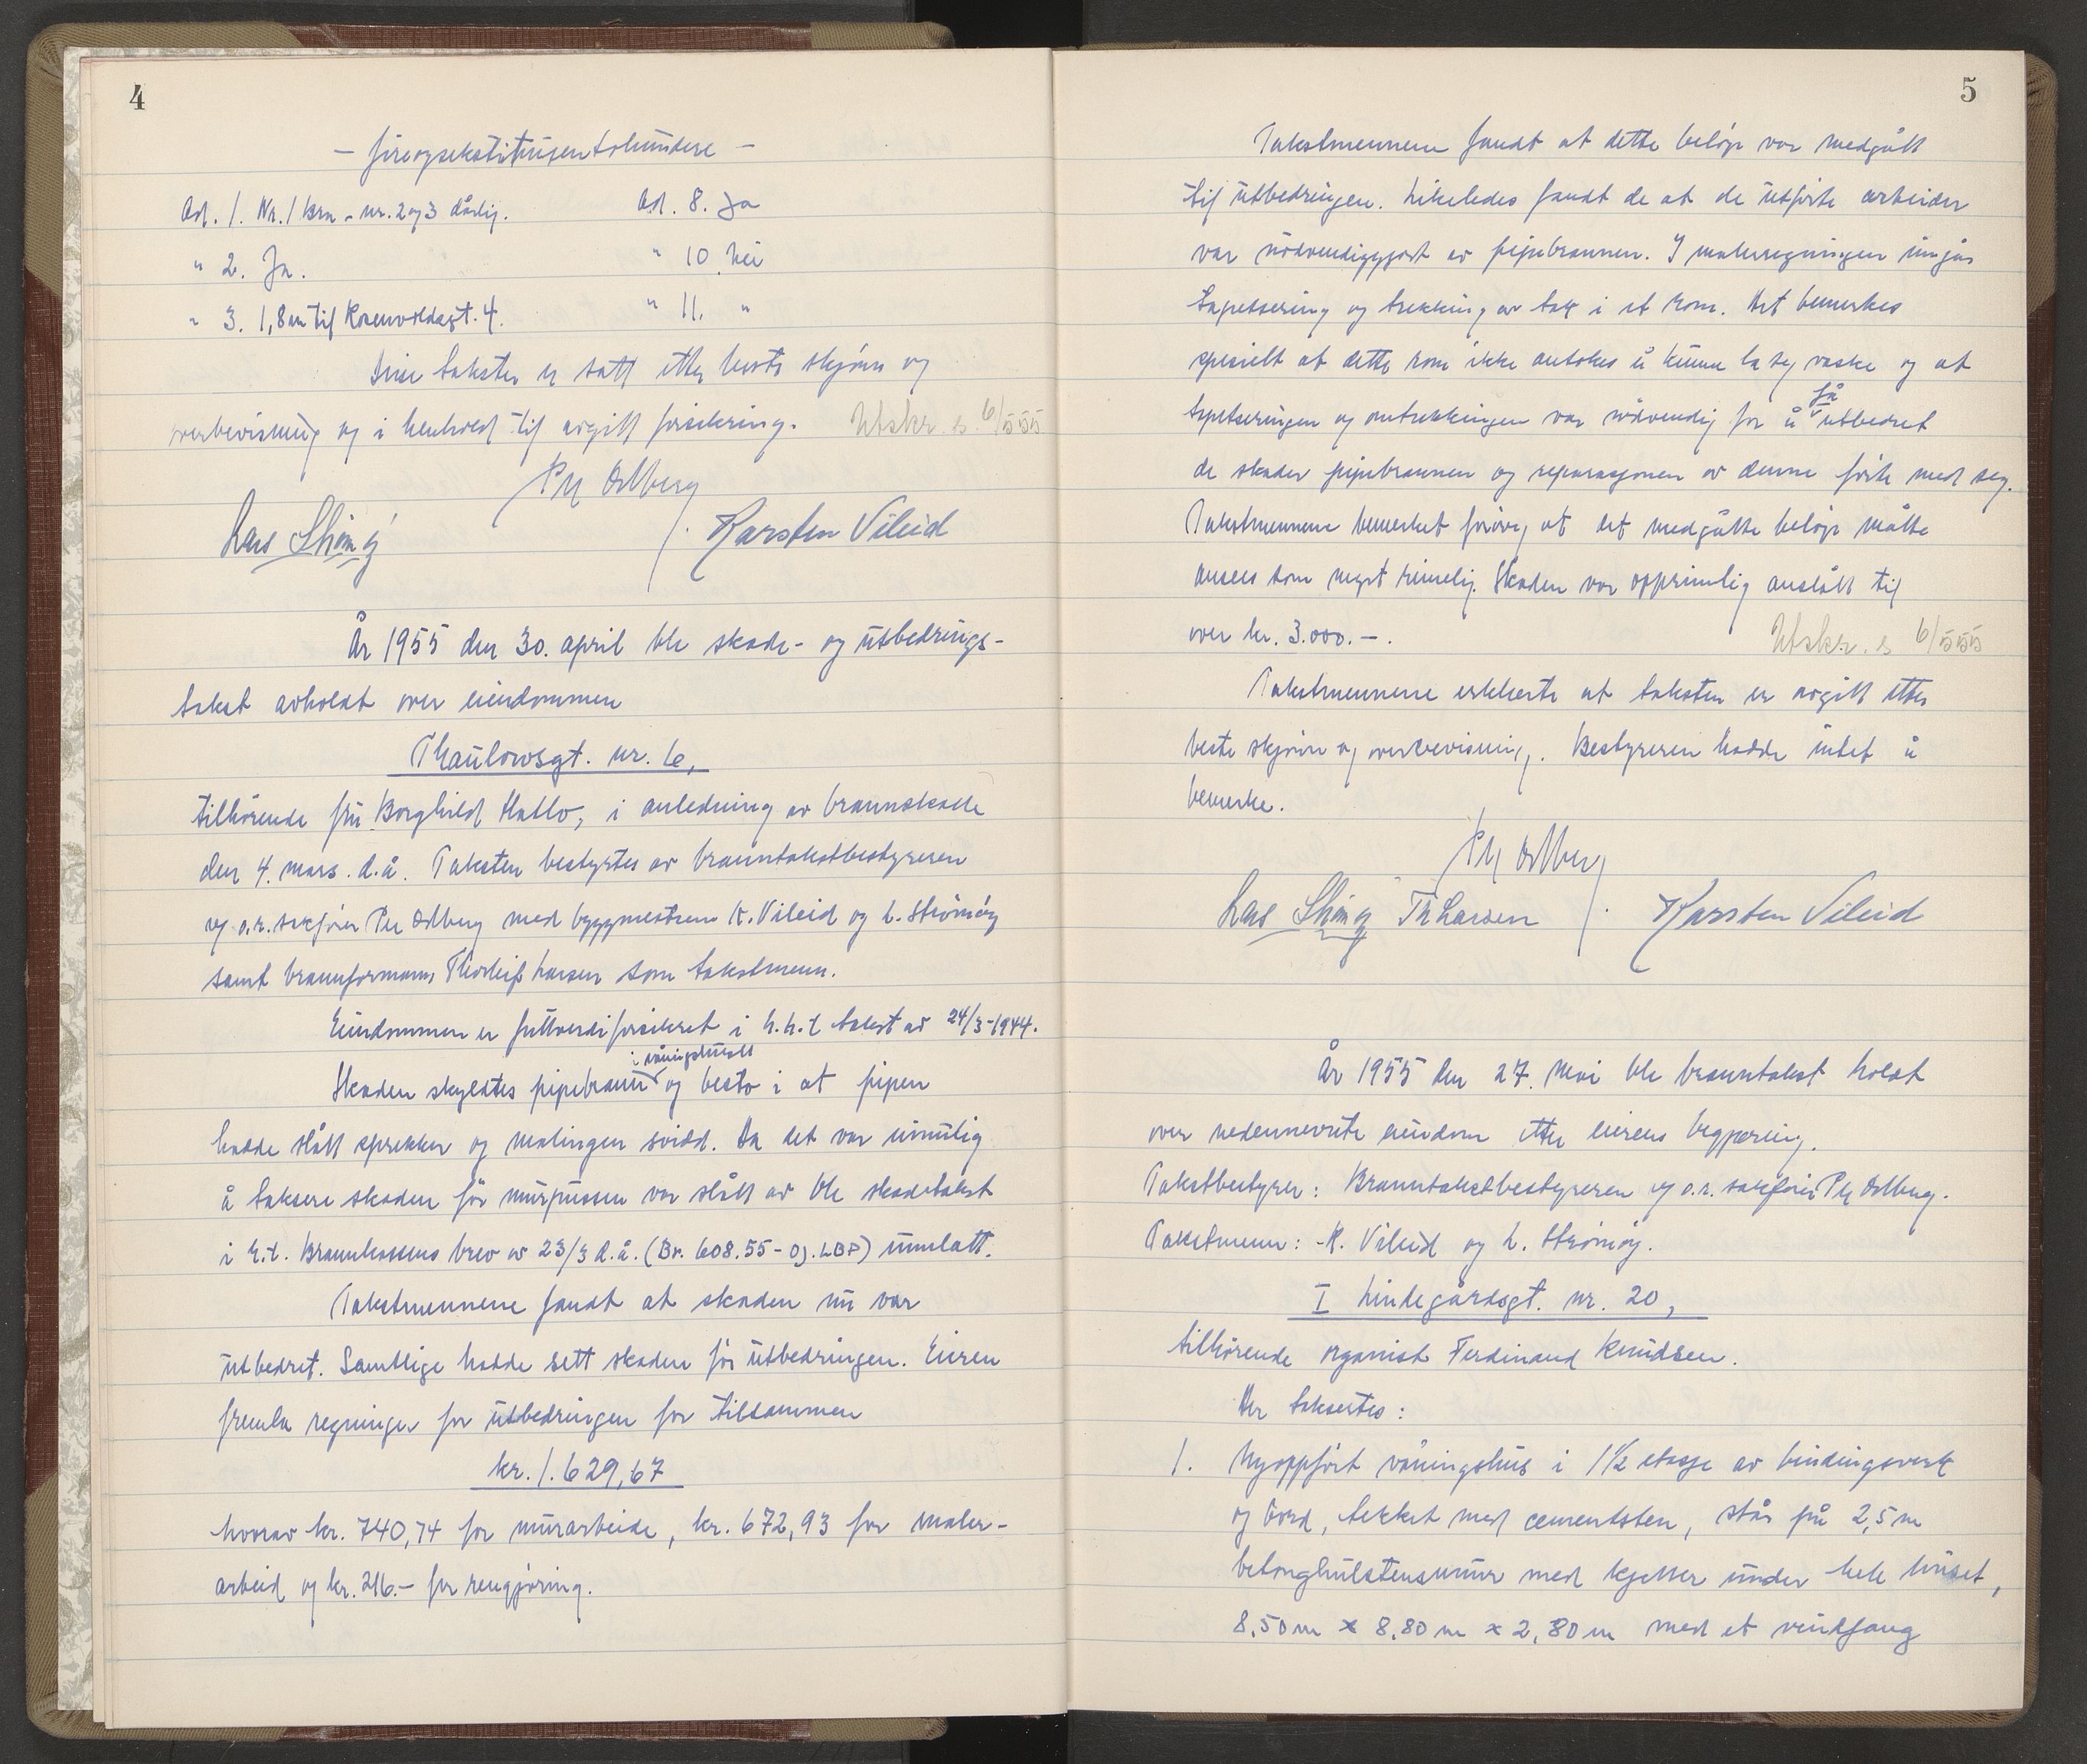 4
– fireogsekstitusentohundre –
Ad. 1. Nr. 1 bra – nr. 2 og 3 dårlig.
Ad. 8. Ja
" 2. Ja.
" 10. Nei
" 3. 1,8 m til Rosenvoldsgt. 4.
" 11. "
Disse takster er satt etter beste skjønn og
overbevisning og i henhold til avgitt forsikring. Utskr. s. 6/5 55
Per Odberg
Lars Strömöy Karsten Vileid
År 1955 den 30. april ble skade- og utbedrings-
takst avholdt over eiendommen
Thaulowsgt. nr. 6,
tilhörende fru Borghild Hatlo, i anledning av brannskade
den 4. mars d.å. Taksten bestyrtes av branntakstbestyreren
og o.r. sakfører Per Odberg med byggmestrene K. Vileid og L. Strömöy
samt brannformann Thorleif Larsen som takstmenn.
Eiendommen er fullverdiforsikret i h.h.t. takst av 24/3-1944.
i våningshuset
Skaden skyldtes pipebrann og besto i at pipen
hadde slått sprekker og malingen svidd. Da det var umulig
å taksere skaden før murpussen var slått av ble skadetakst
i h.t. Brannkassens brev av 23/3 d.å. (Br. 608.55 – Oj. LBP) unnlatt.
Takstmennene fandt at skaden nu var
utbedret. Samtlige hadde sett skaden før utbedringen. Eieren
fremla regninger for utbedringen for tilsammen
kr. 1.629,67
hvorav kr. 740,74 for murarbeide, kr. 672,93 for maler-
arbeid og kr. 216.– for rengjöring.
5
Takstmennene fandt at dette beløp var medgått
til utbedringen. Likeledes fandt de at de utførte arbeider
var nødvendiggjort av pipebrannen. I malerregningen inngår
tapetsering og trekking av tak i et rom. Det bemerkes
spesielt at dette rom ikke antokes å kunne la seg vaske og at
få
tapetseringen og omtrekkingen var nödvendig for å utbedret
de skader pipebrannen og reparasjonen av denne førte med seg.
Takstmennene bemerket forøvrig at det medgåtte beløp måtte
ansees som meget rimelig. Skaden var opprinnelig anslått til
over kr. 3.000.–.
Utskr. s 6/5 55
Takstmennene erklærte at taksten er avgitt etter
beste skjønn og overbevisning. Bestyreren hadde intet å
bemerke.
Per Odberg
Lars Strömöy Th Larsen Karsten Vileid
År 1955 den 27. mai ble branntakst holdt
over nedennevnte eiendom etter eierens begjæring.
Takstbestyrer: Branntakstbestyreren og o.r. sakfører Per Odberg.
Takstmenn: K. Vileid og L. Strömöy.
I Lindegårdsgt. nr. 20,
tilhörende organist Ferdinand Knudsen.
Her taksertes:
1. Nyoppført våningshus i 1 1/2 etasje av bindingsverk
og bord, tekket med cementsten, står på 2,5 m
betonghulstensmur med kjeller under hele huset,
8,50 m x 8,80 m x 2,80 m med et vindfang